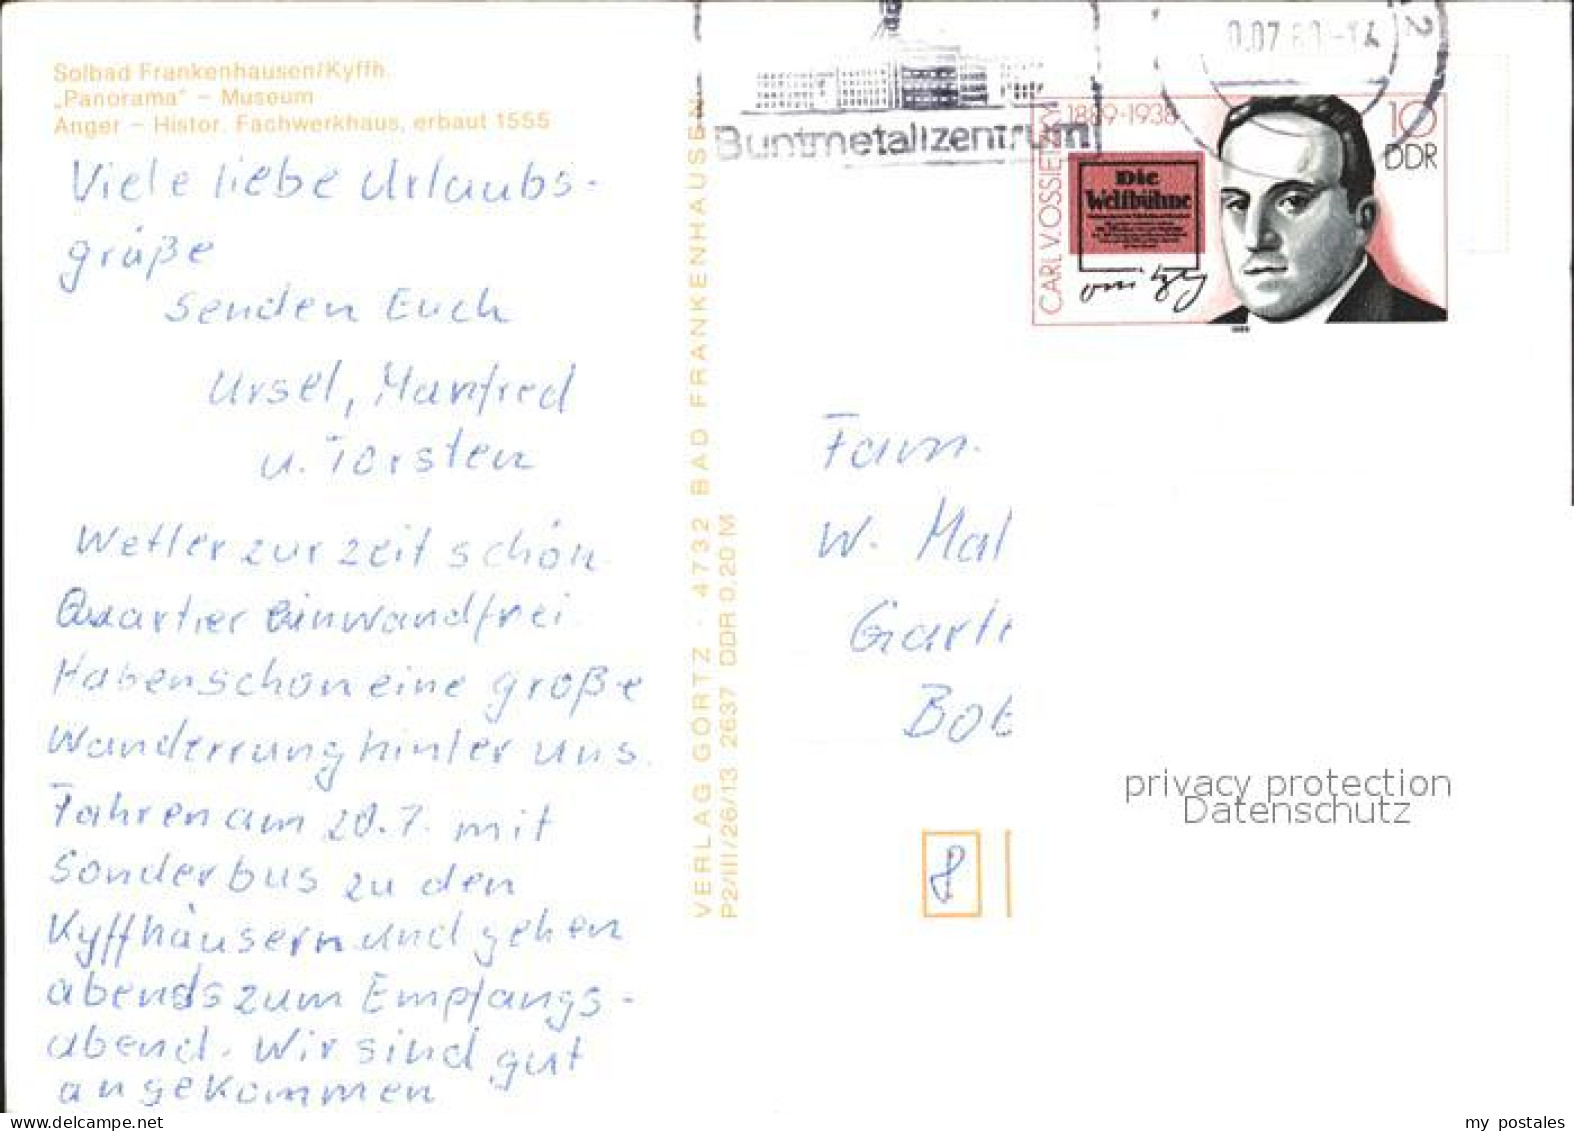 Solbad Frankenhausen/Kyffh.
„Panorama" – Museum
Anger – Histor. Fachwerkhaus, erbaut 1555
Viele liebe Urlaubs-
grüße
senden Euch
Ursel, Manfred
u. Torsten
Wetter zur zeit schön
Quartier einwandfrei
Haben schon eine große
Wanderrung hinter uns.
Fahren am 20.7. mit
Sonderbus zu den
Kyffhäusern und gehen
abends zum Empfangs-
abend. Wir sind gut
angekommen
VERLAG GÖRTZ · 4732 BAD FRANKENHAUSEN
P2/III/26/13 2637 DDR 0,20 M
Buntmetallzentrum
CARL V. OSSIETZKY 1889-1938
10
DDR
Die
Weltbühne
Fam.
W. Mal
Gart
Bob
8
privacy protection
Datenschutz
my postales